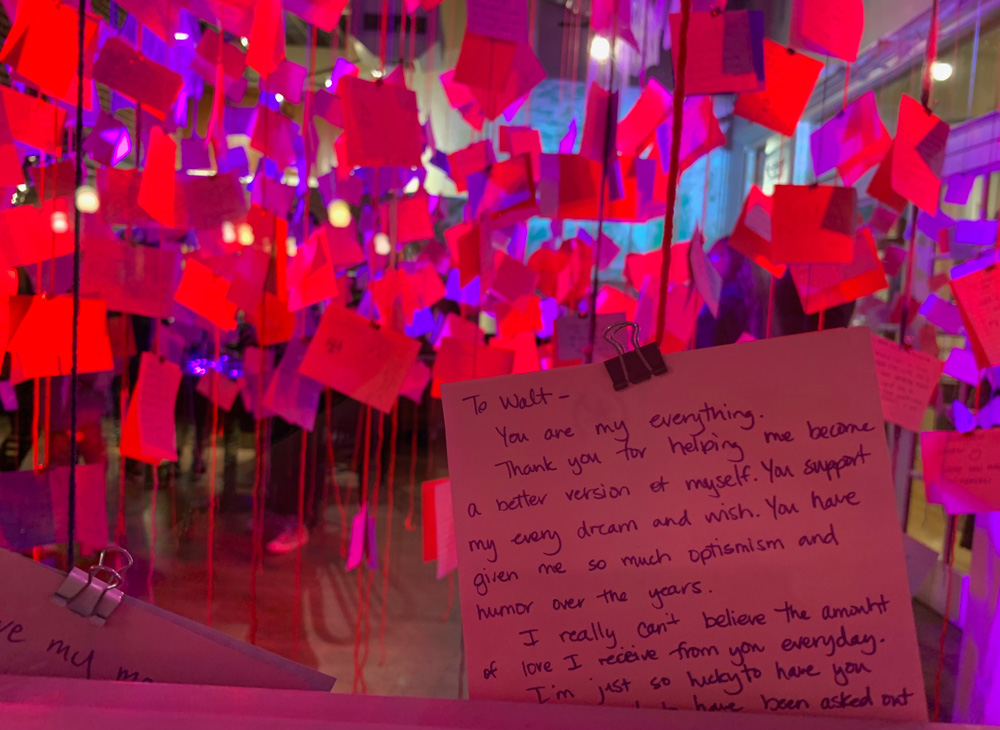 To Walt -
You are my everything.
Thank you for helping me become
a better version of myself. You support
my every dream and wish. You have
given me so much optismism and
humor over the years.
I really can't believe the amount
of love I receive from you everyday.
I'm just so lucky to have you
have been asked out
my